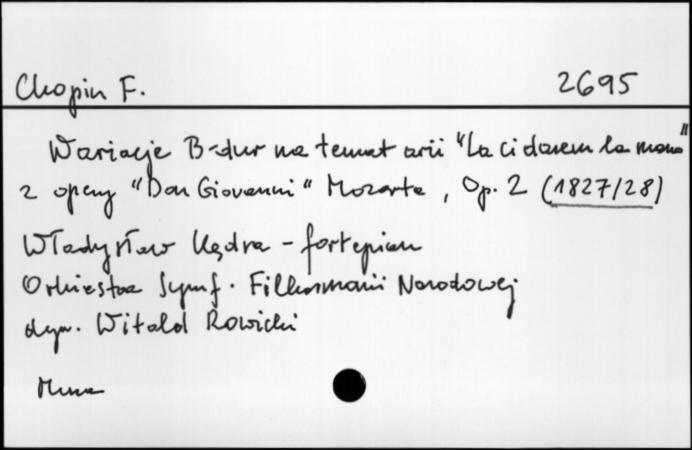 Chopin F. 2695
Wariacje B-dur na temat arii "La ci darem la mano"
z opery "Don Giovanni" Mozarta, Op. 2 (1827/28)
Władysław Kędra - fortepian
Orkiestra Symf. Filharmonii Narodowej
dyr. Witold Rowicki
Muza